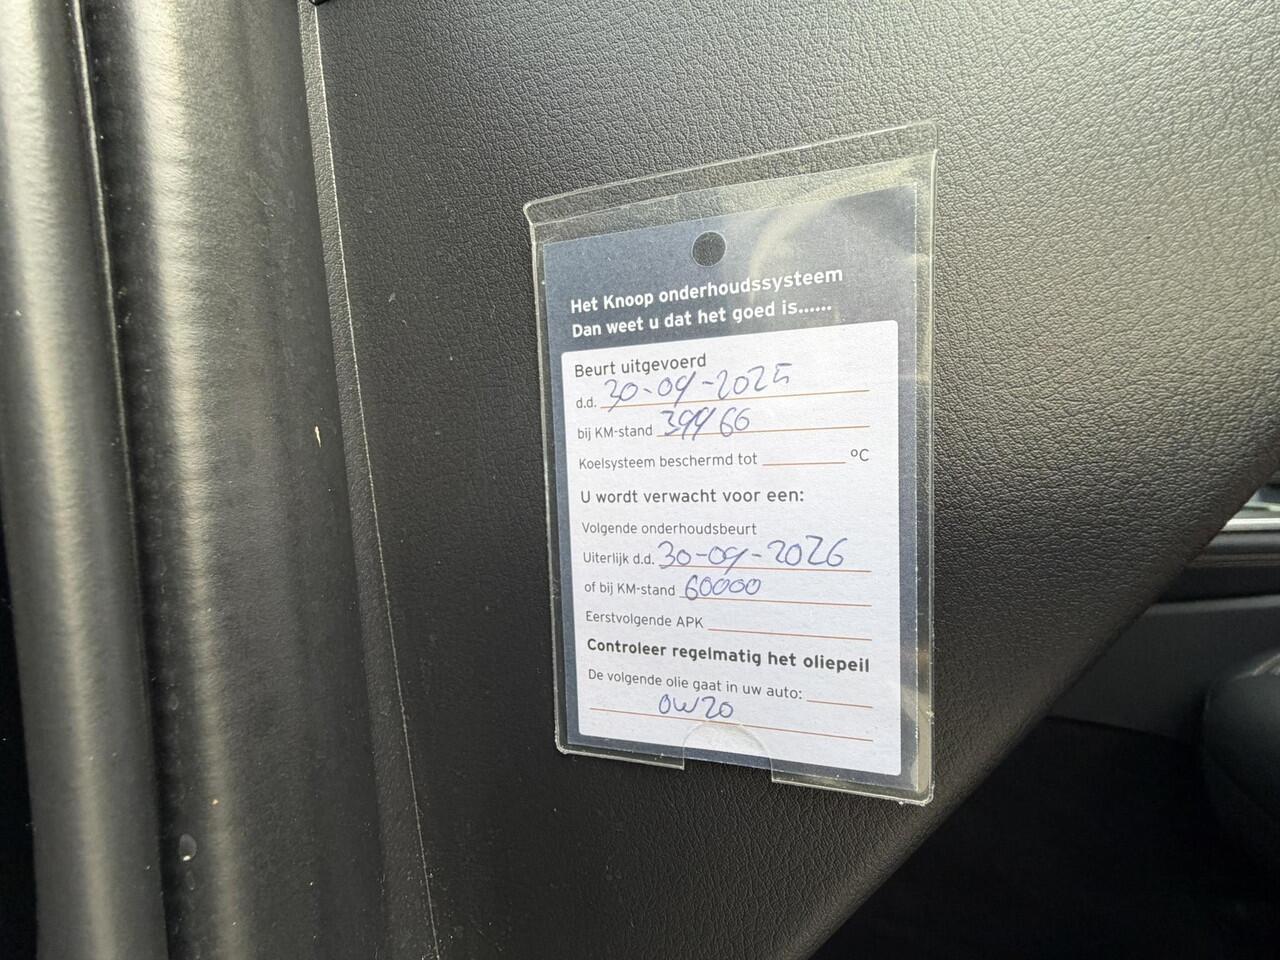 Het Knoop onderhoudssysteem
Dan weet u dat het goed is......
Beurt uitgevoerd
d.d. 30-09-2025
bij KM-stand 39966
Koelsysteem beschermd tot °C
U wordt verwacht voor een:
Volgende onderhoudsbeurt
Uiterlijk d.d. 30-09-2026
of bij KM-stand 60000
Eerstvolgende APK
Controleer regelmatig het oliepeil
De volgende olie gaat in uw auto:
0W20